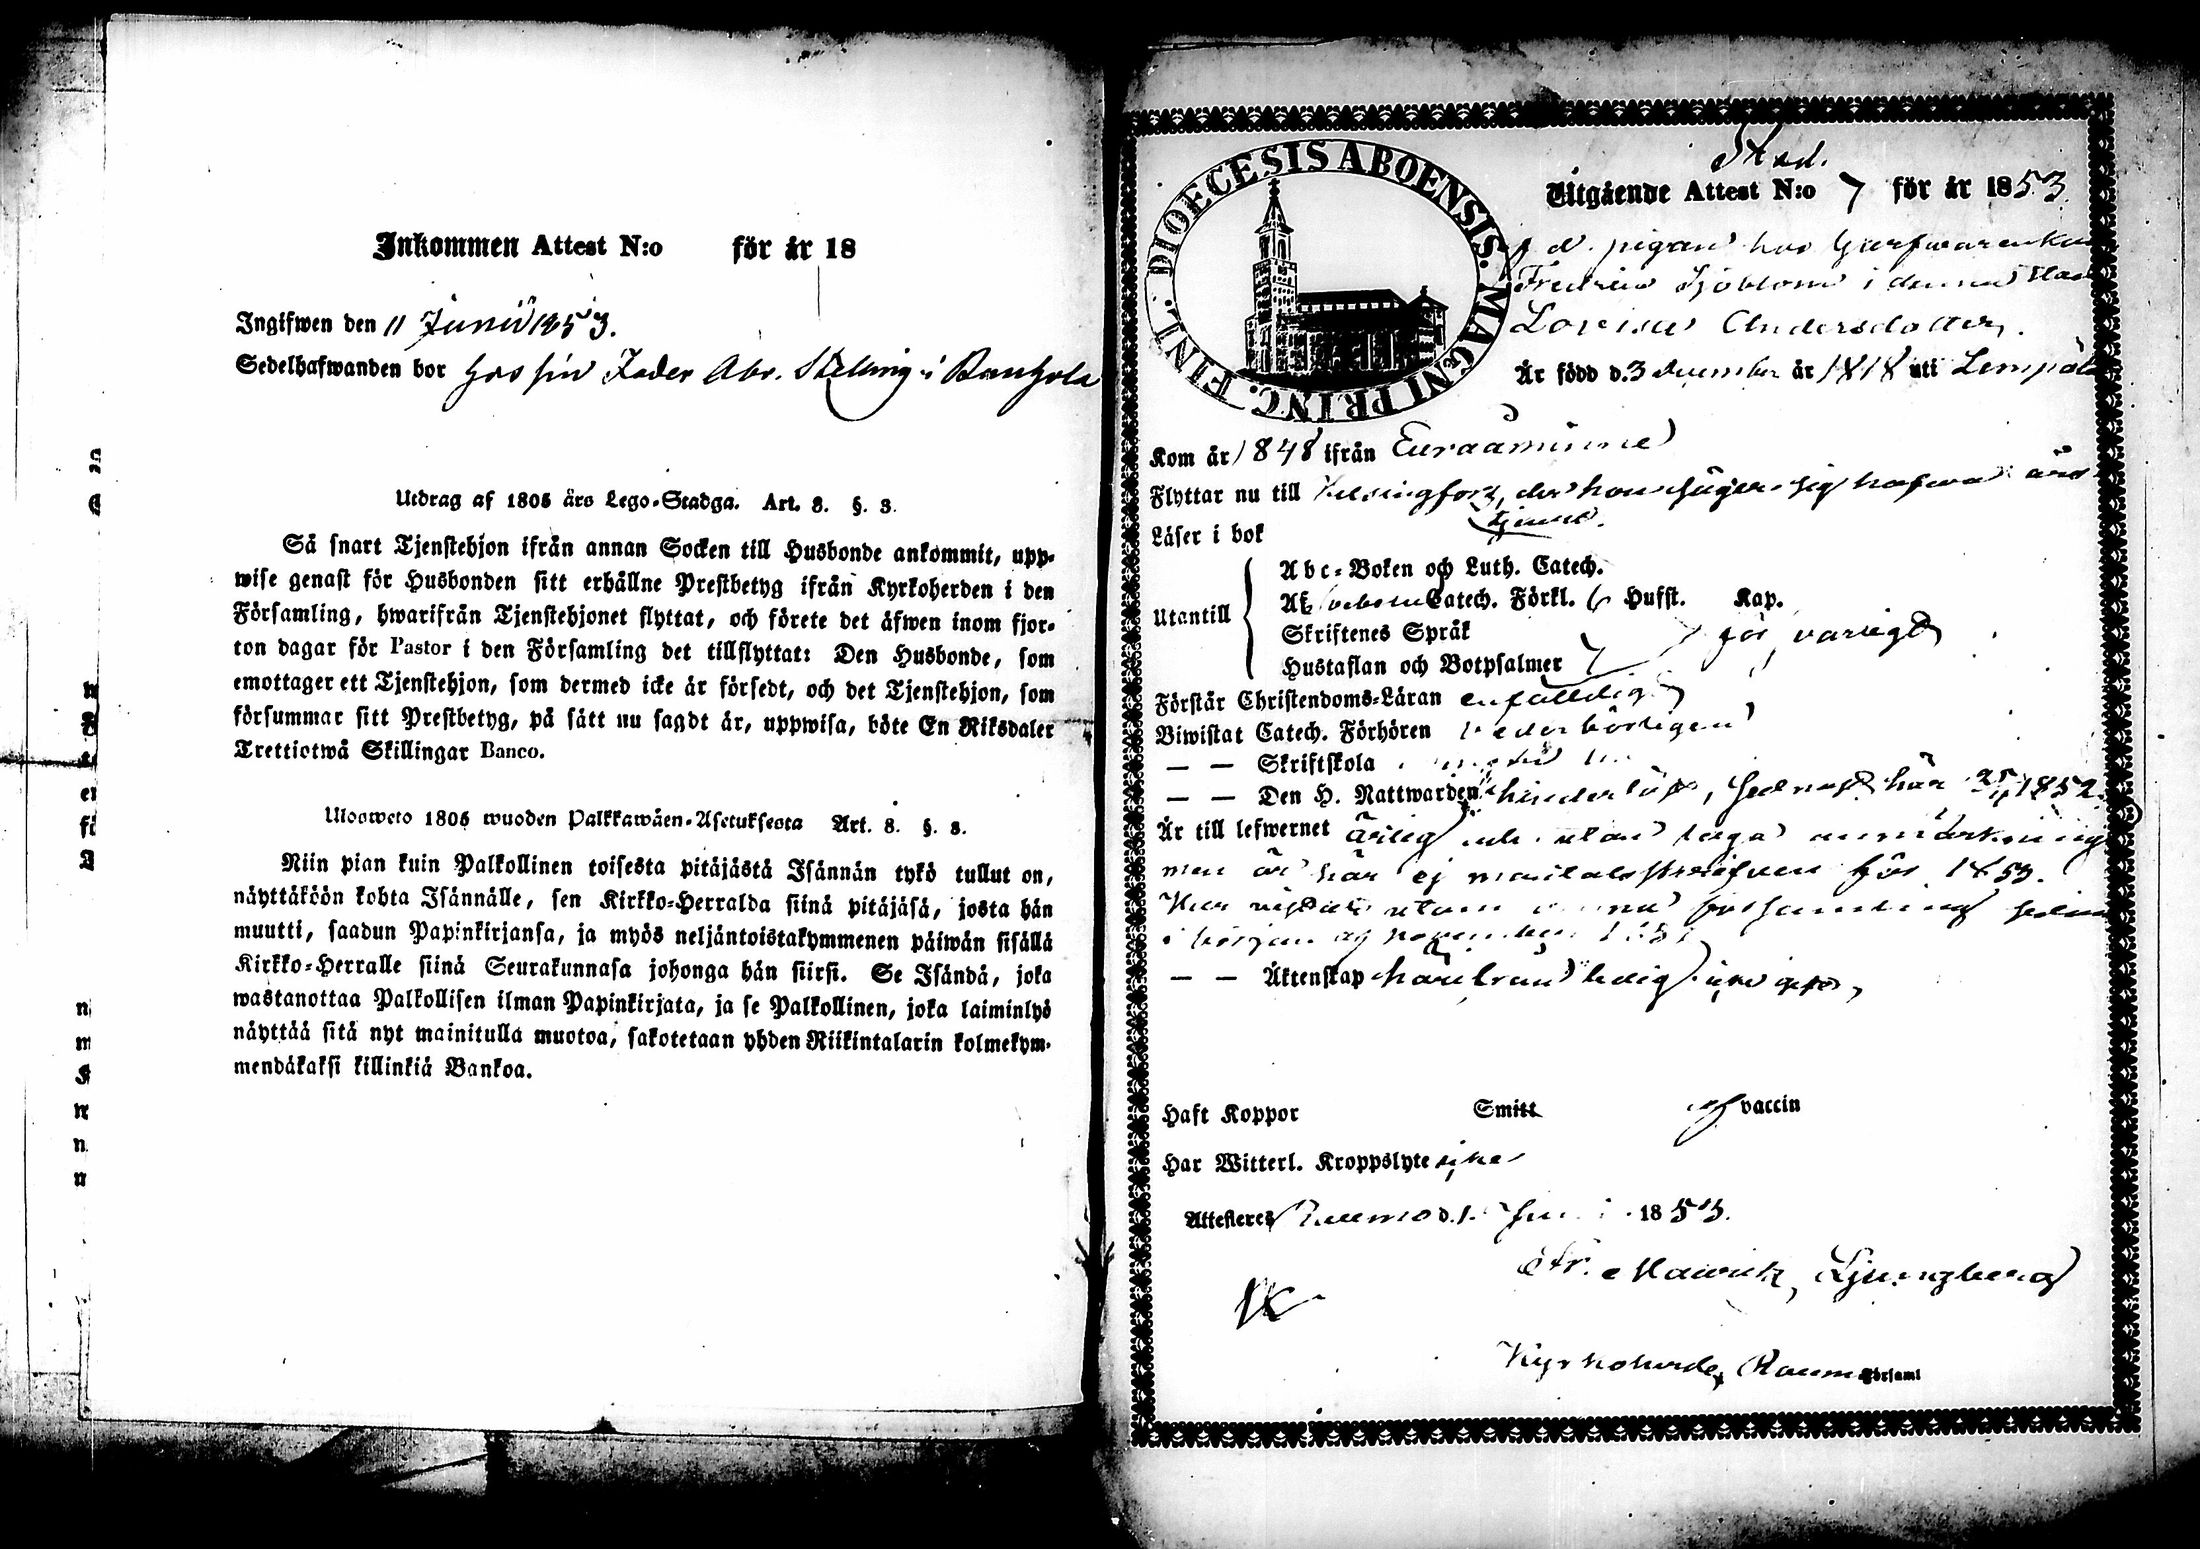 Inkommen Attest N:o för år 18
Ingifwen den 11 Junii 1853.
Sedelhafwanden bor hos sin Fader Abr. i
Utdrag af 1805 års Lego-Stadga. Art. 8. §. 3.
Så snart Tjenstehjon ifrån annan Socken till Husbonde ankommit, upp-
wise genast för Husbonden sitt erhållne Prestbetyg ifrån Kyrkoherden i den
Församling, hwarifrån Tjenstehjonet flyttat, och förete det äfwen inom fjor-
ton dagar för Pastor i den Församling det tillflyttat: Den Husbonde, som
emottager ett Tjenstehjon, som dermed icke är försedt, och det Tjenstehjon, som
försummar sitt Prestbetyg, på sätt nu sagdt är, uppwisa, böte En Riksdaler
Trettiotwå Skillingar Banco.
Ulosweto 1805 wuoden Palkkawäen-Asetuksesta Art. 8. §. 3.
Niin pian kuin Palkollinen toisesta pitäjästä Isännän tykö tullut on,
näyttäköön kohta Isännälle, sen Kirkko-Herralda siinä pitäjäsä, josta hän
muutti, saadun Papinkirjansa, ja myös neljäntoistakymmenen päiwän sisällä
Kirkko-Herralle siinä Seurakunnasa johonga hän siirsi. Se Isändä, joka
wastanottaa Palkollisen ilman Papinkirjata, ja se Palkollinen, joka laiminlyö
näyttää sitä nyt mainitulla muotoa, sakotetaan yhden Riikintalarin kolmekym-
mendäkaksi killinkiä Bankoa.
DIOECESIS ABOENSIS. MAGNI PRINC. FINL.
Stad.
Utgående Attest N:o 7 för år 1853.
f d. pigan hos Garfwarenkan
Fredrica Sjöblom i denna Stad
Lovisa Andersdotter.
Är född d. 3 december år 1818 uti Lempälä
Kom år 1848 ifrån Euraaminne
Flyttar nu till Helsingfors, der hon säger sig hafwa års
tjenst.
Läser i bok
Utantill
Abc-Boken och Luth. Catech.
Af Svebom Catech. Förkl. Husst. Kap.
Skriftenes Språk försvarligt
Hustaflan och Botpsalmer
Förstår Christendoms-Läran enfaldigt
Biwistat Catech. Förhören vederbörligen
— — Skriftskola
— — Den H. Nattwarden hinderlöst, sednast här 1852.
Är till lefwernet ärlig och utan laga anmärkning
men är här ej mantalsskrifven för 1853.
Har vistats utom denna församling sedan
i början af november
— — Äktenskap härifrån ledig
Haft Koppor Smitt vaccin
Har Witterl. Kroppslyte icke
Attesteres Raumo d. 1853.
Fr. Mawritz Ljungberg
Kyrkoherde, Raumo Församl